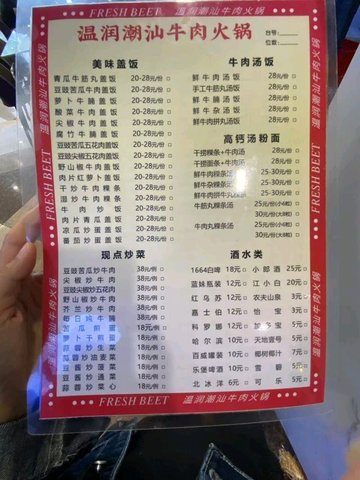 FRESH BEET 温润潮汕牛肉火锅
温润潮汕牛肉火锅
台号:
位数:
美味盖饭
青瓜牛筋丸盖饭 20-28元/份
豆豉苦瓜牛肉盖饭 20-28元/份
萝卜牛腩盖饭 20-28元/份
酸菜牛肉盖饭 20-28元/份
尖椒牛肉盖饭 20-28元/份
腐竹牛腩盖饭 20-28元/份
豆豉苦瓜五花肉盖饭 20-28元/份
豆豉尖椒五花肉盖饭 20-28元/份
野山椒牛肉盖饭 20-28元/份
肉片红萝卜盖饭 20-28元/份
干炒牛肉粿条 20-28元/份
湿炒牛肉粿条 20-28元/份
牛肉炒饭 20-28元/份
肉片青瓜盖饭 20-28元/份
凉瓜炒蛋盖饭 20-28元/份
番茄炒蛋盖饭 20-28元/份
牛肉汤饭
鲜牛肉汤饭 28元/份
手工牛筋丸汤饭 28元/份
鲜牛腩汤饭 28元/份
鲜牛杂汤饭 28元/份
鲜牛肉拼丸汤饭 28元/份
高钙汤粉面
干捞粿条+牛肉汤 28元/份
干捞粿条+牛杂汤 28元/份
鲜牛肉粿条汤 25-30元/份
鲜牛杂粿条汤 25-30元/份
鲜牛肉拼牛丸粿条汤 25-30元/份
牛筋丸粿条汤 25元/份(小4粒)
30元/份(大8粒)
牛肉丸粿条汤 25元/份(小4粒)
30元/份(大8粒)
现点炒菜
豆豉苦瓜炒牛肉 38元/例
尖椒炒牛肉 38元/例
豆豉尖椒炒五花肉 38元/例
野山椒炒牛肉 38元/例
芥兰炒牛肉 38元/例
每日鸡牛腩 38元/例
苦瓜煎蛋 18元/例
萝卜干煎蛋 18元/例
蒜蓉炒生菜 18元/例
蒜蓉炒油麦菜 18元/例
豆酱炒菠菜 18元/例
豆酱炒通菜 18元/例
蒜蓉炒菜心 18元/例
酒水类
1664白啤 18元
蓝妹瓶装 12元
红乌苏 12元
嘉士伯 12元
科罗娜 12元
哈尔滨 10元
百威罐装 10元
乐堡啤酒 10元
北冰洋 6元
小郎酒 25元
江小白 20元
农夫山泉 3元
怡宝 3元
加多宝 5元
天地壹号 5元
椰树椰汁 7元
雪碧 5元
可乐 5元
FRESH BEET 温润潮汕牛肉火锅
FRESH BEET 温润潮汕牛肉火锅
FRESH BEET 温润潮汕牛肉火锅